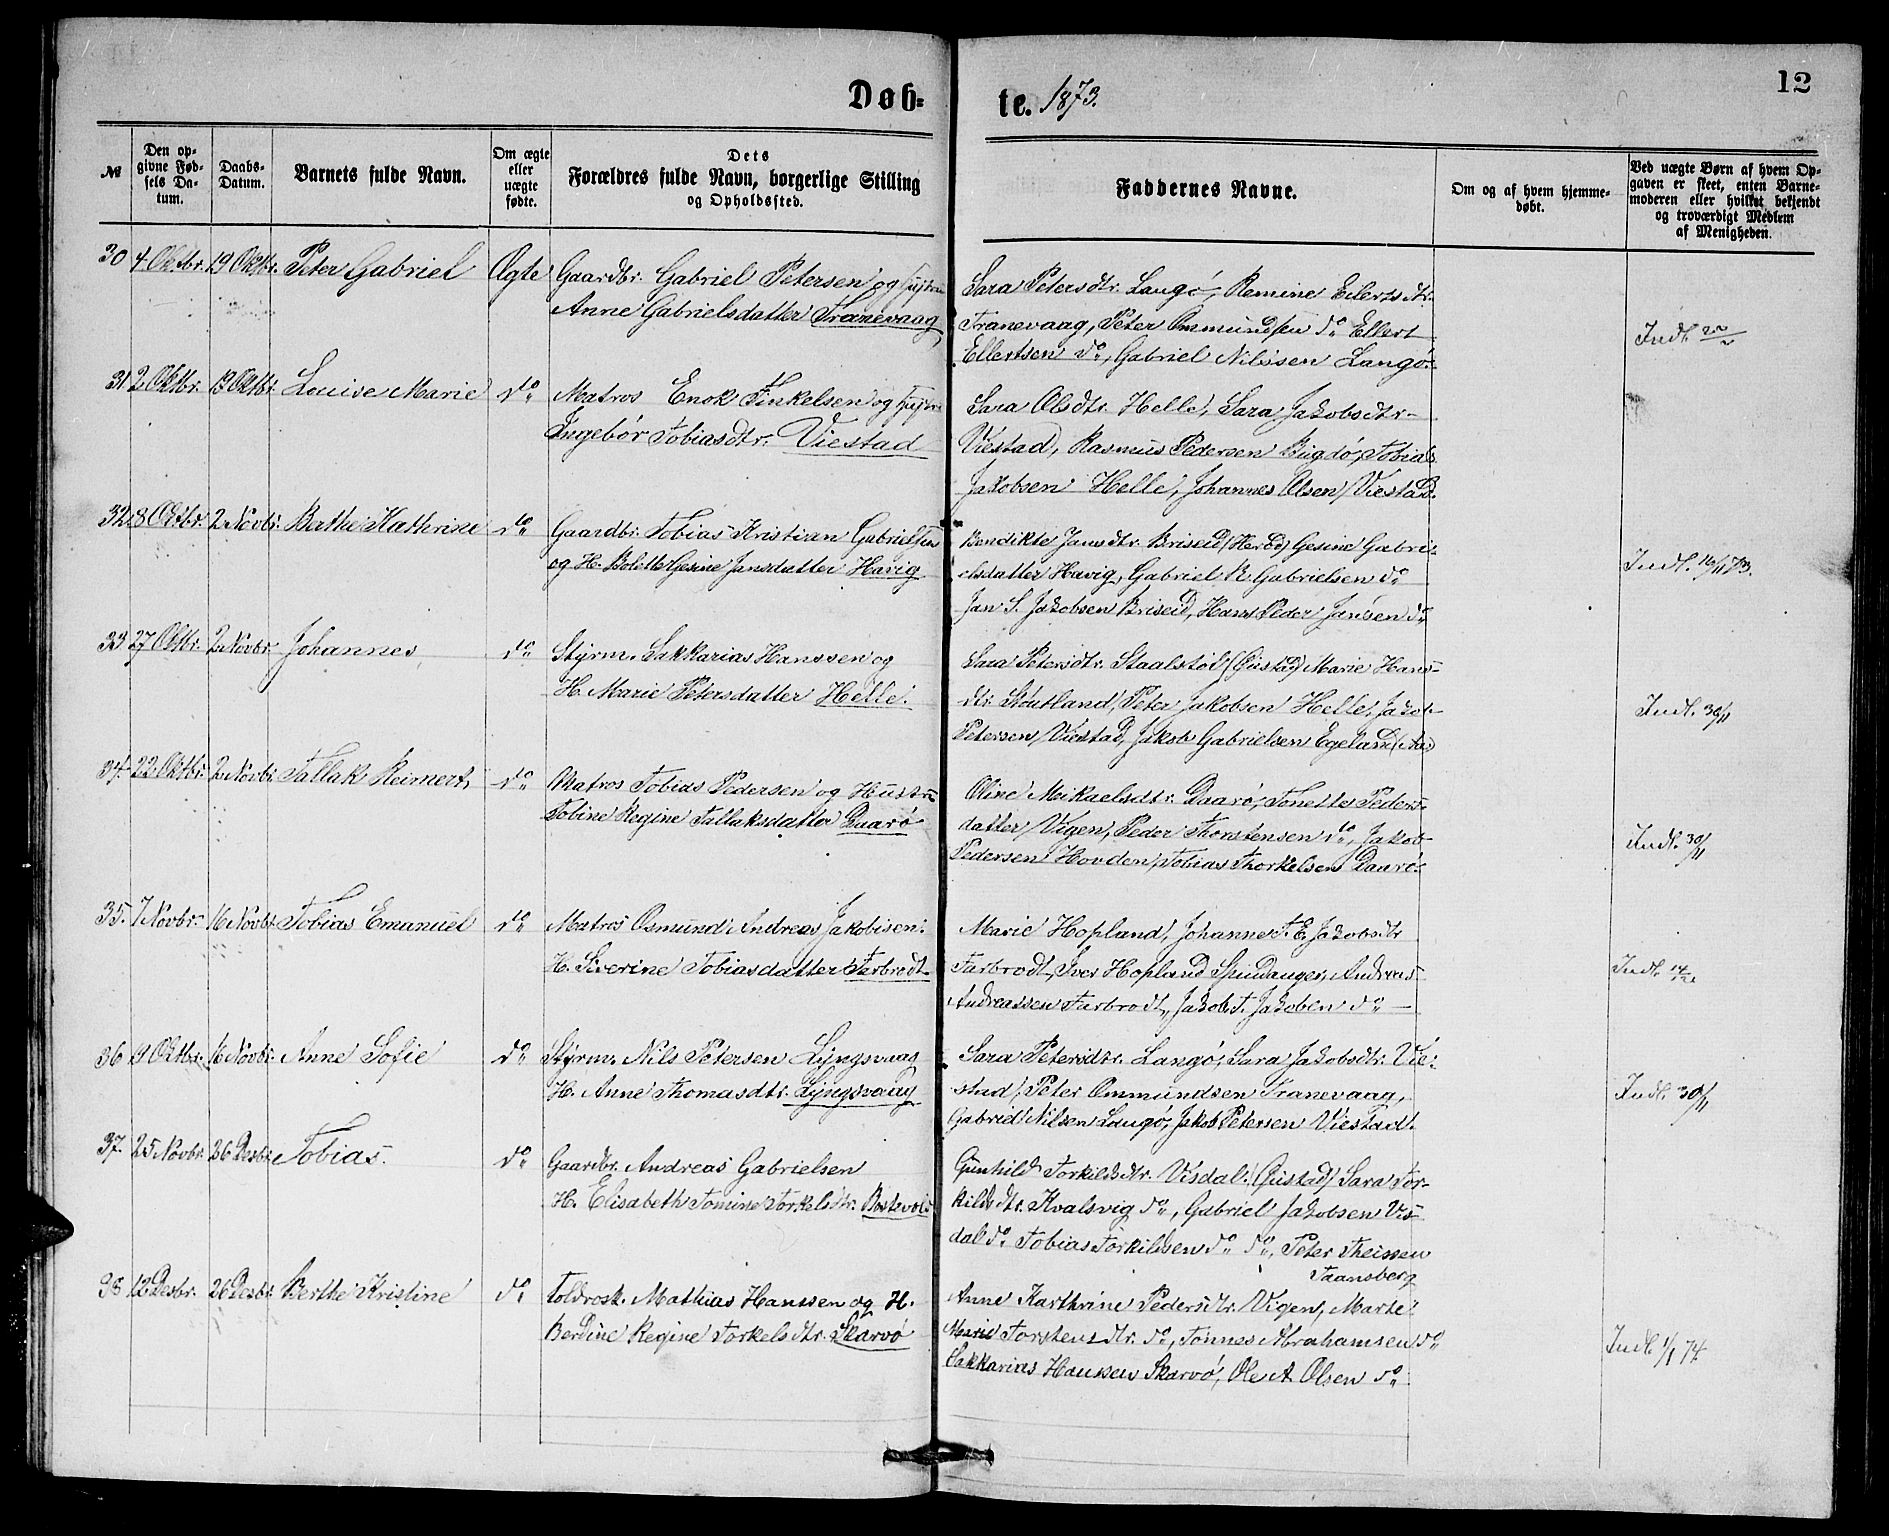 Døb-
te. 1873.
12
№
Den op-
givne Fød-
sels Da-
tum.
Daabs-
Datum.
Barnets fulde Navn.
Om ægte
eller
uægte
fødte.
Dets
Forældres fulde Navn, borgerlige Stilling
og Opholdssted.
Faddernes Navne.
Om og af hvem hjemme-
døbt.
Ved uægte Børn af hvem Op-
gaven er skeet, enten Barne-
moderen eller hvilket bekjendt
og troværdigt Medlem
af Menigheden.
30 4 Oktbr. 19 Oktbr. Peter Gabriel Ægte Gaardbr. Gabriel Petersen og
Anne Gabrielsdatter Tranevaag
Sara Petersdtr. Langø, Remine Eilertsdtr.
Tranevaag, Peter Ommundsen do Ellert
Ellertsen do, Gabriel Nilssen Langø.
Indl.
31 2 Oktbr. 19 Oktbr. Louise Marie do Matros Enok Tinkelsen og
Ingebør Tobiasdtr. Viestad
Sara Olsdtr. Helle, Sara Jakobsdtr
Viestad, Rasmus Pedersen Bugdø, Tobias
Jakobsen Helle, Johannes Olsen Viestad.
32 8 Oktbr. 2 Novbr. Berthe Kathrine do Gaardbr. Tobias Kristian Gabrielsen
og H. Bolette Gesine Jansdatter Havig
Bendikte Jansdtr. Briseid (Herød) Gesine Gabri-
elsdatter Havig, Gabriel R. Gabrielsen do
Jan S. Jakobsen Briseid, Hans Peder Jansen do
Indl. 16/11 73.
33 27 Oktbr. 2 Novbr. Johannes do Styrm. Sakkarias Hanssen og
H. Marie Petersdatter Helle.
Sara Petersdtr. Staalstøl (Øustad) Marie Hans-
dtr. Stoutland, Peter Jakobsen Helle, Jakob
Petersen Viestad, Jakob Gabrielsen Egeland
Indl. 30/11
34. 22 Oktbr. 2 Novbr. Tallak Reimert, do Matros Tobias Pedersen og Hustru
Tobine Regine Tallaksdatter Daarø
Oline Mikaelsdtr. Daarø, Tonette Peders-
datter Vigen, Peder Thorstensen do, Jakob
Pedersen Hovden, Tobias Thorkelsen Daarø.
Indl. 30/11
35. 7 Novbr. 16 Novbr. Tobias Emanuel do Matros Osmund Andreas Jakobsen.
H. Siverine Tobiasdatter Farbrodt
Marie Hopland, Johanne T. E. Jakobsdtr
Farbrodt, Iver Hopland Spindanger, Andreas
Andreassen Farbrodt, Jakob T. Jakobsen do
Indl.
36 19 Oktbr. 16 Novbr. Anne Sofie do Styrm. Nils Petersen Lyngsvaag
H. Anne Thomasdtr. Lyngsvaag
Sara Petersdtr. Langø, Sara Jakobsdtr. Vie-
stad, Peter Ommundsen Tranevaag,
Gabriel Nilsen Langø, Jakob Petersen Viestad.
Indl. 30/11
37. 25 Novbr. 26 Desbr. Tobias. do Gaardbr. Andreas Gabrielsen
H. Elisabeth Tomine Torkelsdtr.
Gunhild Torkildsdtr. Visdal (Øustad) Sara Tor-
kildsdtr. Kvalsvig do, Gabriel Jakobsen Vis-
dal do Tobias Torkildsen do do, Peter Theissen
Taansberg
38 12 Desbr. 26 Desbr. Berthe Kristine do Toldrosk. Mathias Hanssen og H.
Berdine Regine Torkelsdtr. Skarvø
Anne Karthrine Pedersdtr. Vigen, Marte
Marie Torstensdtr. do, Tønnes Abrahamsen do
Sakkarias Hanssen Skarvø, Ole A Olsen do
Indl. 1/1 74.